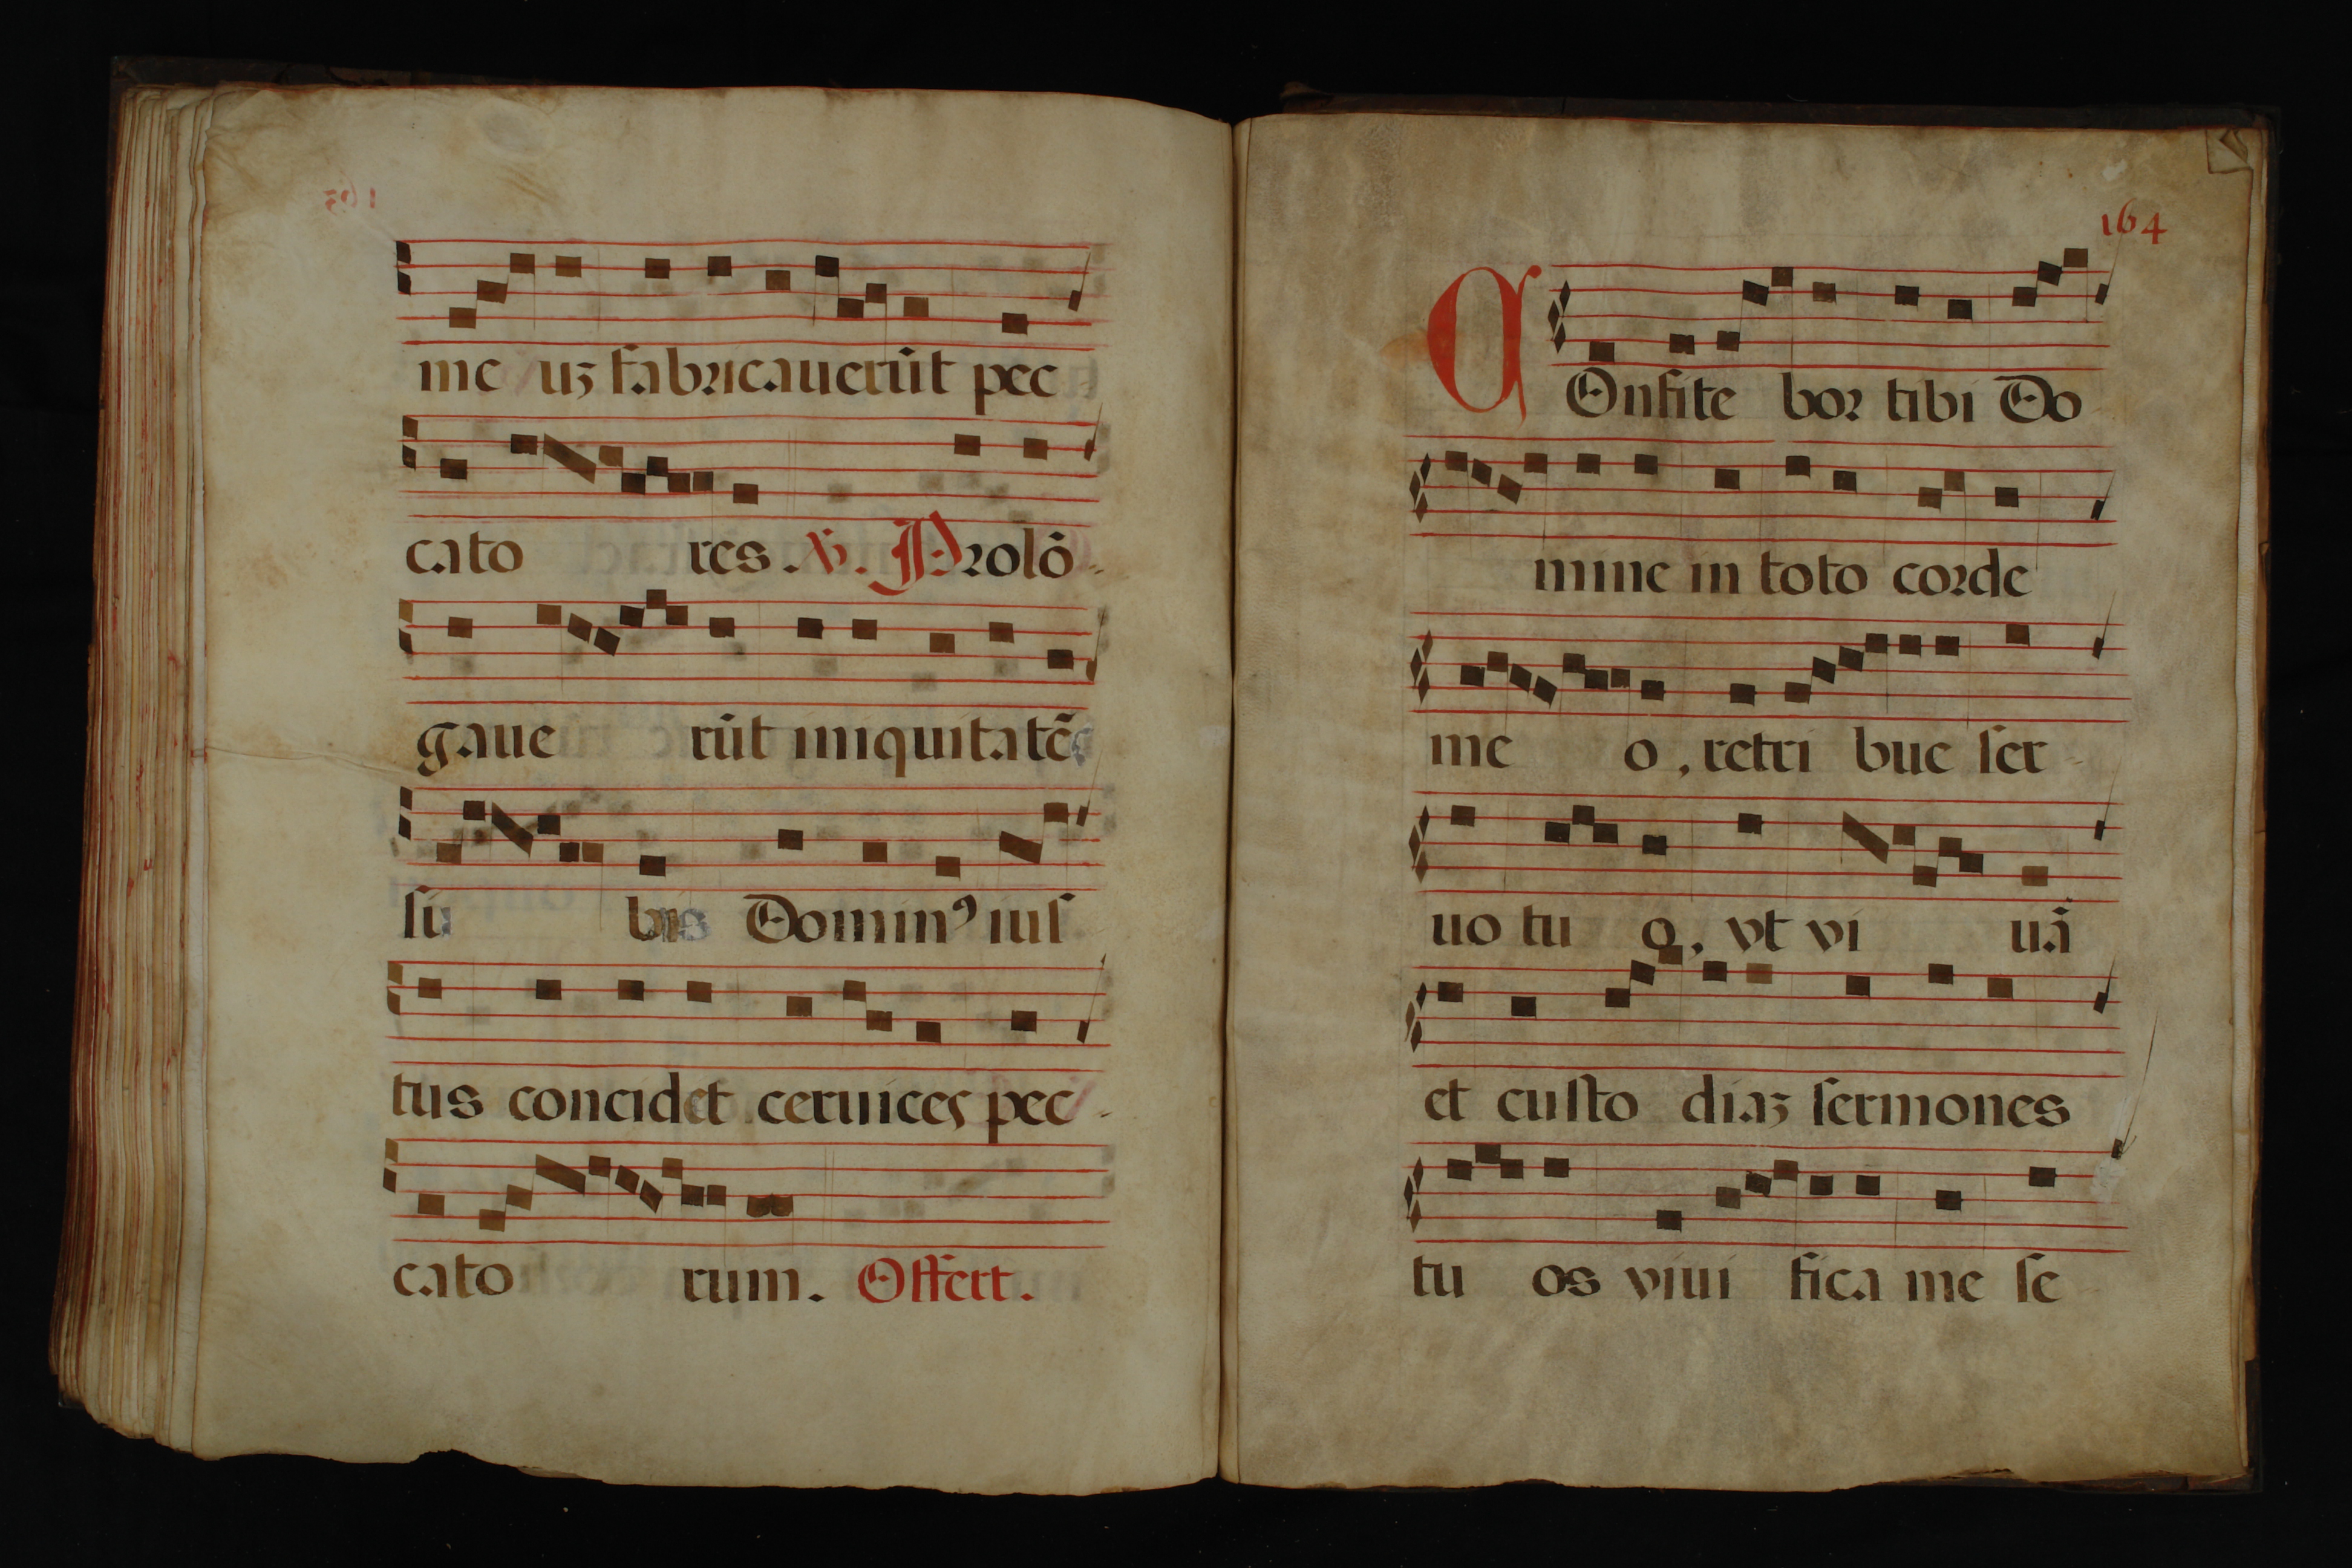 me uʒ fabricauerūt pec
cato res ℣. Prolō-
gaue rūt iniquitatē
si bis Dominꝰ ius
tus concidet ceruices pec-
cato rum. Offert.
164
COnfite bor tibi Do
mine in toto corde
me o, retri bue ser-
uo tu o, vt vi uā
et custo diaʒ sermones
tu os viui fica me se